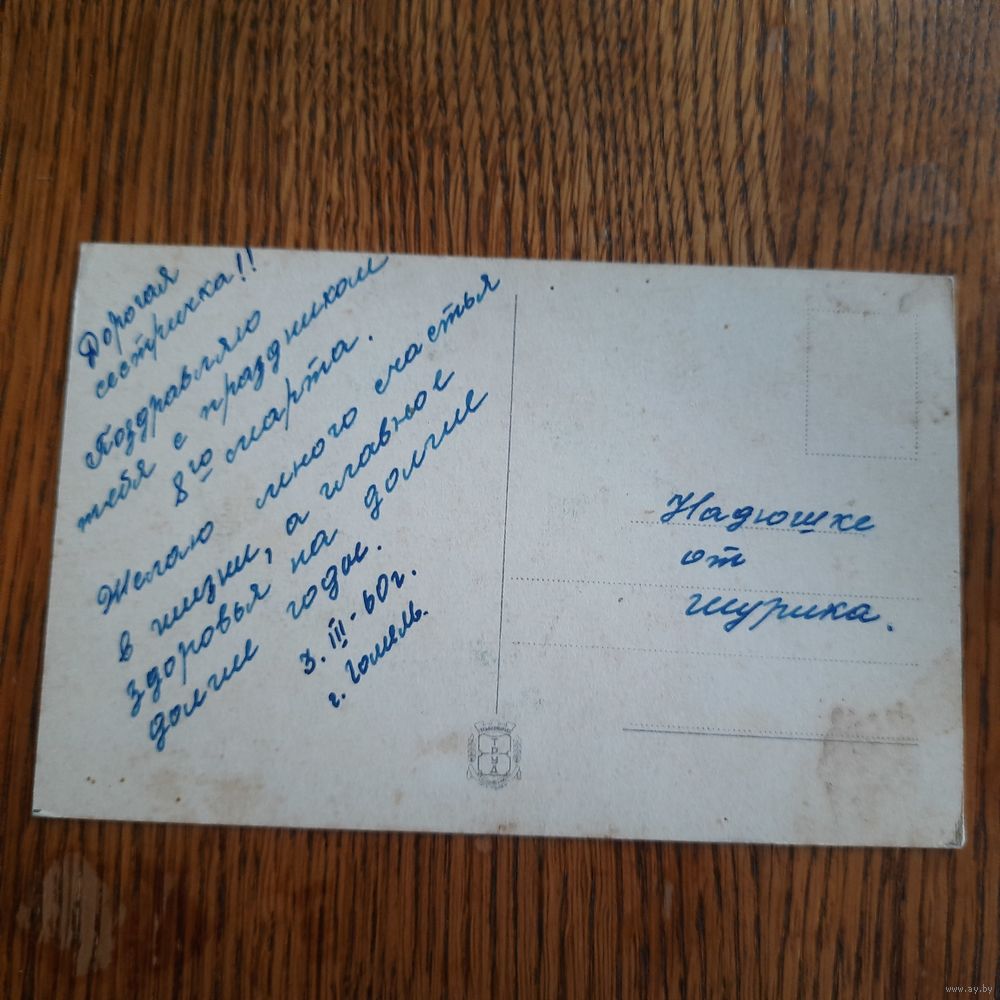 Дорогая
сестричка!!
Поздравляю
тебя с праздником
8го марта.
Желаю много счастья
в жизни, а главное
здоровья на долгие
долгие годы.
3. III-60г.
г. Гомель.
Надюшке
от
Шурика.
ТРУД
www.ay.by